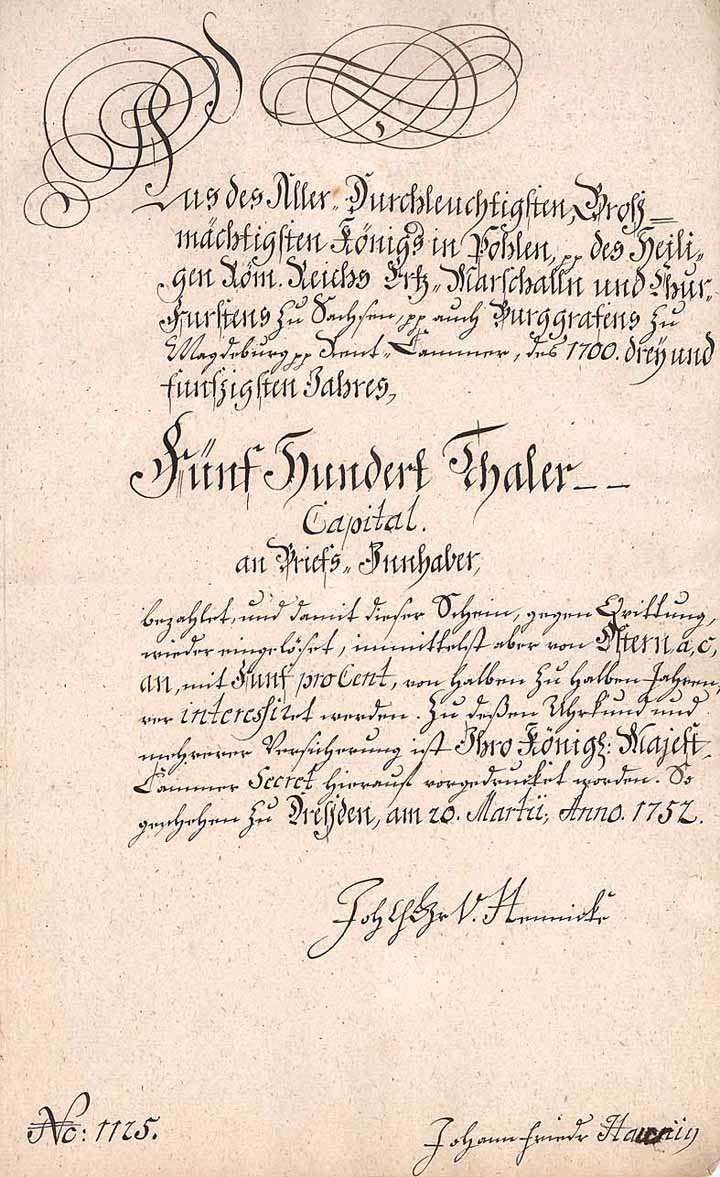 Aus des Aller-Durchleuchtigsten, Groß=
mächtigsten Königs in Pohlen, pp des Heili-
gen Röm. Reichs Ertz-Marschalln und Chur-
Furstens zu Sachsen, pp auch Burggrafens zu
Magdeburg pp Rent-Cammer, des 1700. drey und
funfzigsten Jahres,
Fünf Hundert Thaler
Capital.
an Briefs-Innhaber,
bezahlet, und damit dieser Schein, gegen Qvittung,
wieder eingelöset, immittelst aber von Ostern a, c,
an, mit Funf pro Cent, von halben zu halben Jahren,
ver interessiret werden. Zu deßen Uhrkund und
mehrerer Versicherung ist Ihro Königl: Majest.
Cammer Secret hierauf vorgedrucket worden. So
geschehen zu Dreßden, am 20. Martii, Anno. 1752.
V. Hennicke
No: 1125.
Johann Friedr